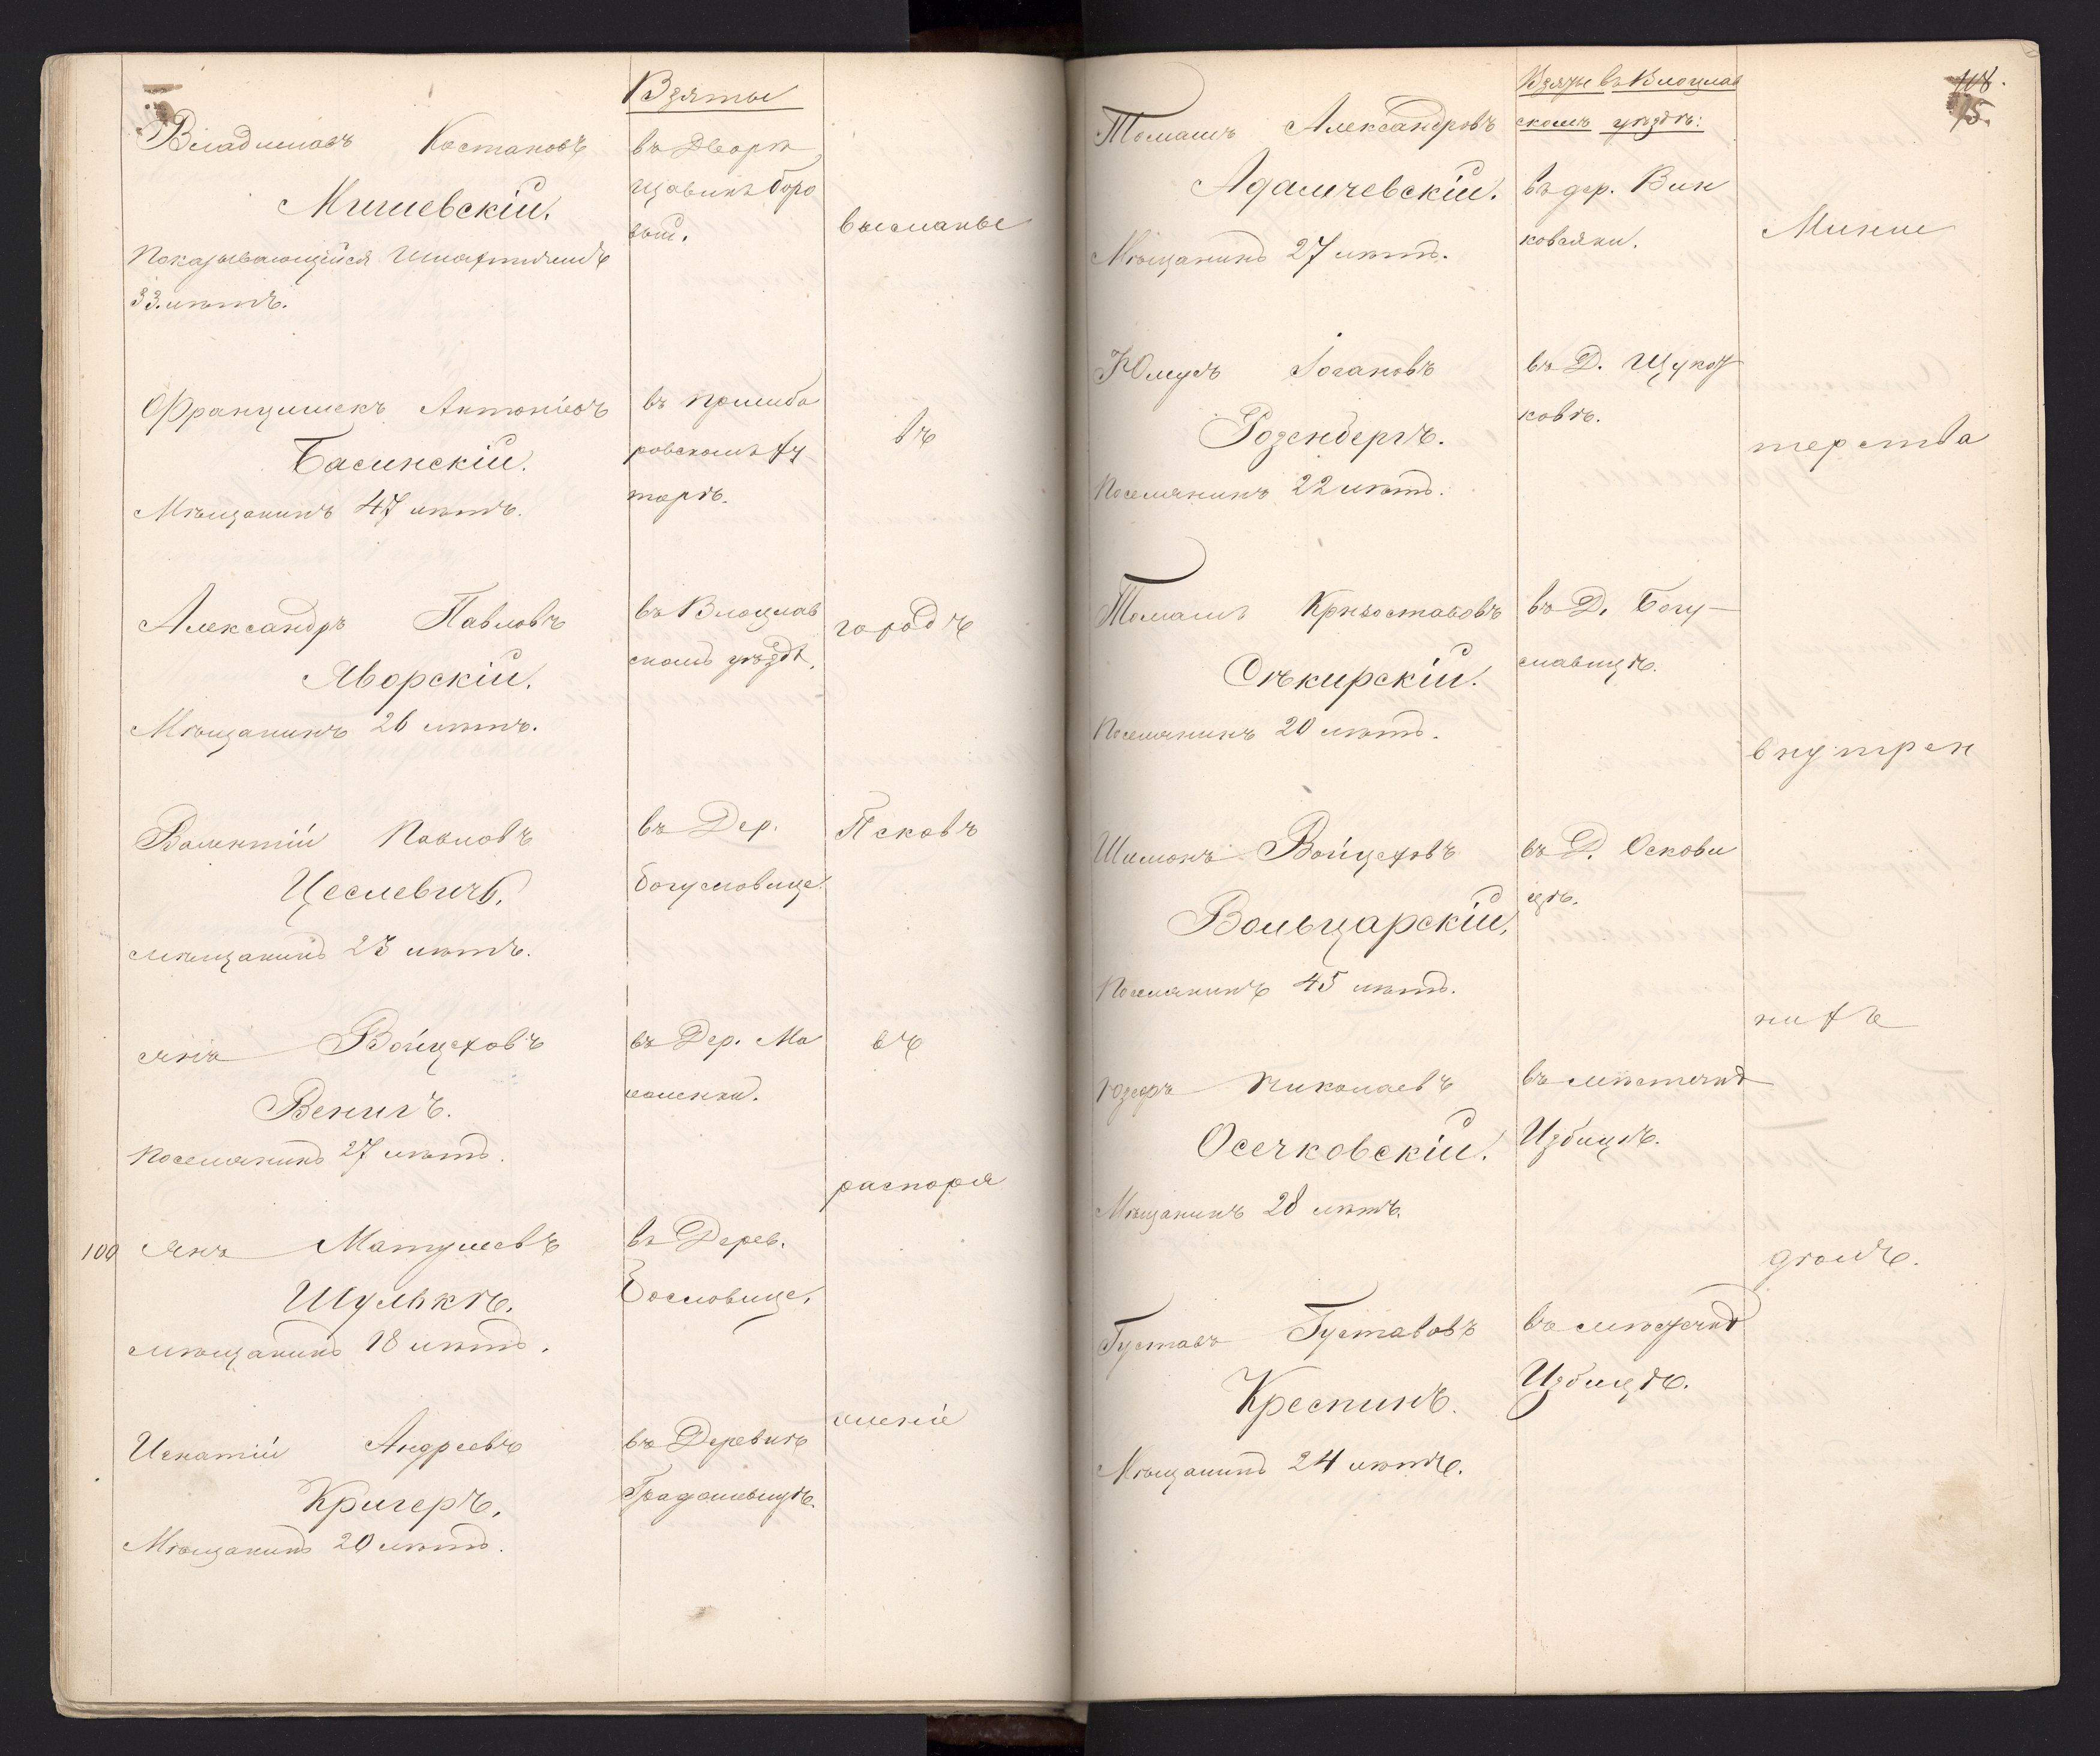 Взятые
Владиславъ Костановъ
въ Дворѣ
Мишевскій.
Показывающійся Шляхтичемъ
33. лѣтъ.
высланы
Францишекъ Антоніевъ
Басинскій.
Мѣщанинъ 47 лѣтъ.
въ
ровскомъ фу
торѣ.
въ
Александръ Павловъ
Яворскій.
Мѣщанинъ 26 лѣтъ.
въ Влоцлав
скомъ уѣздѣ.
городъ
Валентій Павловъ
Цеслевичъ.
мѣщанинъ 23 лѣтъ.
въ Дер.
Богусловице.
Псковъ
Янъ Войцеховъ
Венигъ.
Поселянинъ 27 лѣтъ.
въ Дер. Ма
въ
распоря
100 Янъ Матушевъ
Шульктъ.
мѣщанинъ 18 лѣтъ.
въ Дерев.
Бословице.
женіе
Игнатій Андреевъ
Кригеръ.
Мѣщанинъ 20 лѣтъ.
въ Деревнѣ
118.
75.
Взяты въ Влоцлав
скомъ уѣздѣ:
Томашъ Александровъ
Адамчевскій.
Мѣщанинъ 27 лѣтъ.
въ дер. Вин
Мини
Юлусъ Іогановъ
Розенбергъ.
Поселянинъ 22 лѣтъ.
въ Д. Щуков
ковѣ.
терства
Томашъ
Сѣкирскій.
Поселянинъ 20 лѣтъ.
въ Д. Богу-
славицѣ.
внутрен
Шимонъ Войцеховъ
Вольцарскій.
Поселянинъ 45 лѣтъ.
въ Д. Оскови
цѣ.
нихъ
Юзефъ Николаевъ
Осечковскій.
Мѣщанинъ 28 лѣтъ.
въ мѣстечкѣ
Избицѣ.
дѣлъ.
Густавъ Густавовъ
Креспинъ.
Мѣщанинъ 24 лѣтъ.
въ мѣстечкѣ
Избицѣ.